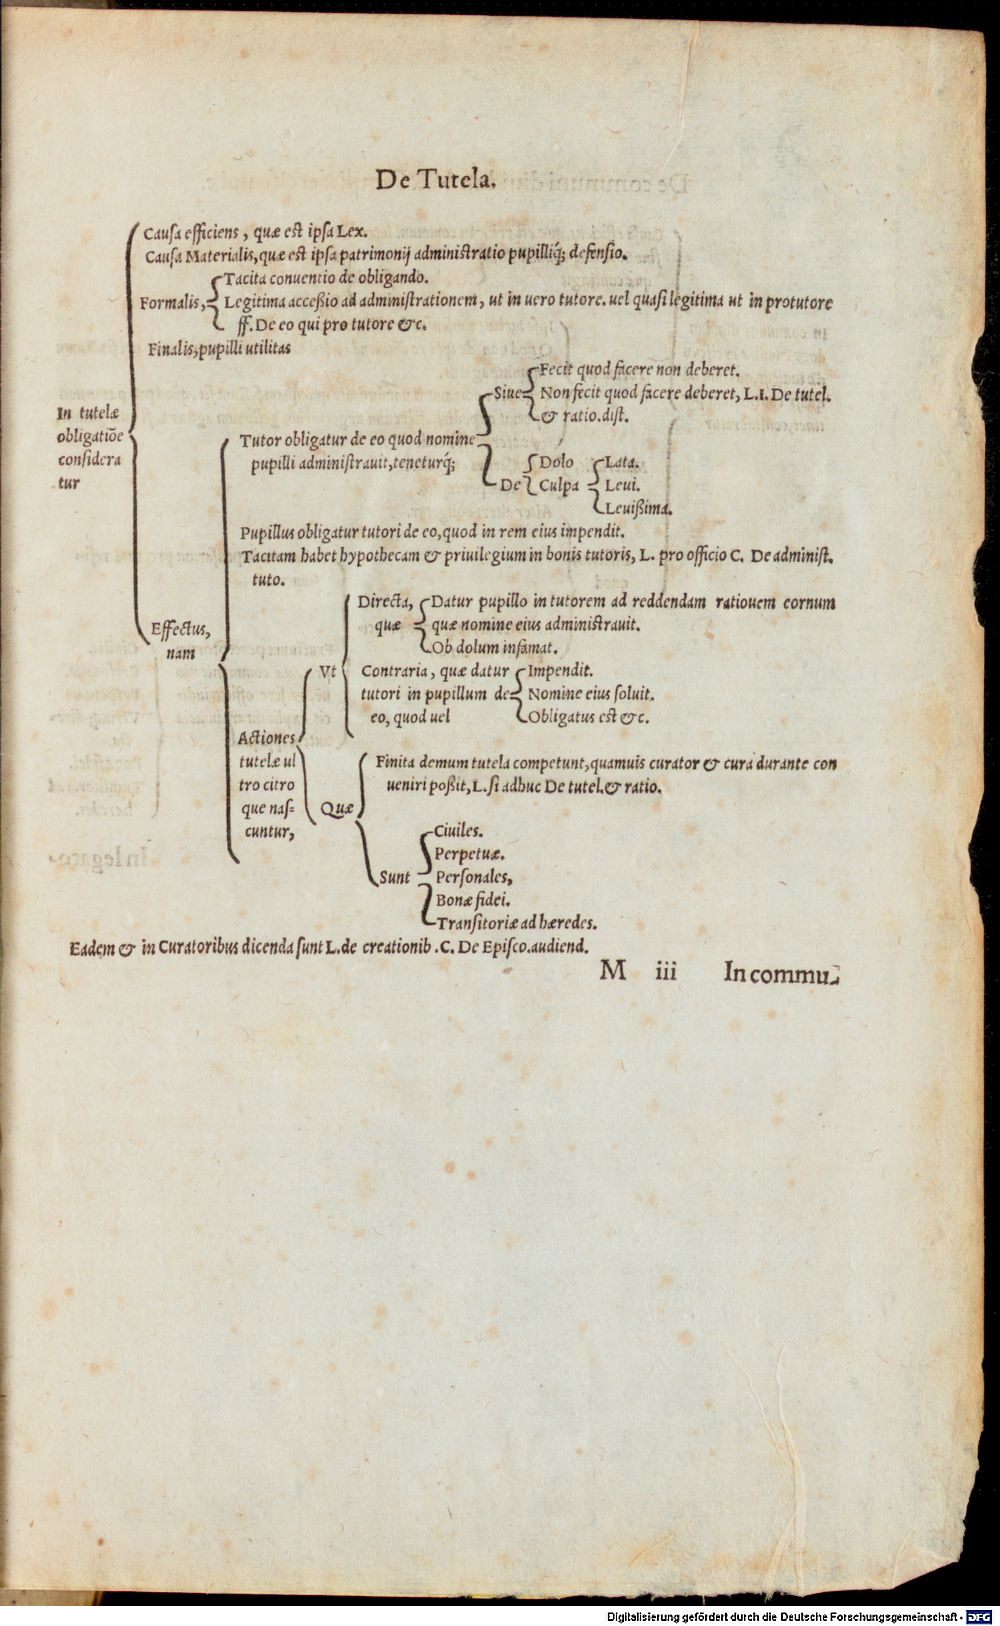 De Tutela.
Causa efficiens, quæ est ipsa Lex.
Causa Materialis, quæ est ipsa patrimonij administratio pupilliq́; defensio.
Formalis,
Tacita conuentio de obligando.
Legitima accessio ad administrationem, ut in uero tutore. uel quasi legitima ut in protutore
ff. De eo qui pro tutore &c.
Finalis, pupilli utilitas
In tutelæ
obligatiōe
considera
tur
Effectus,
nam
Tutor obligatur de eo quod nomine
pupilli administrauit, teneturq́;
Siue
Fecit quod facere non deberet.
Non fecit quod facere deberet, L.I. De tutel.
& ratio. dist.
De
Dolo
Culpa
Lata.
Leui.
Leuissima.
Pupillus obligatur tutori de eo, quod in rem eius impendit.
Tacitam habet hypothecam & priuilegium in bonis tutoris, L. pro officio C. De administ.
tuto.
Actiones
tutelæ ul
tro citro
que nas=
cuntur,
Vt
Directa,
quæ
Datur pupillo in tutorem ad reddendam rationem eornum
quæ nomine eius administrauit.
Ob dolum infamat.
Contraria, quæ datur
tutori in pupillum de
eo, quod uel
Impendit.
Nomine eius soluit.
Obligatus est &c.
Quæ
Finita demum tutela competunt, quamuis curator & cura durante con
ueniri possit, L. si adhuc De tutel. & ratio.
Sunt
Ciuiles.
Perpetuæ.
Personales,
Bonæ fidei.
Transitoriæ ad hæredes.
Eadem & in Curatoribus dicenda sunt L. de creationib. C. De Episco. audiend.
M iii In commu-
Digitalisierung gefördert durch die Deutsche Forschungsgemeinschaft - DFG